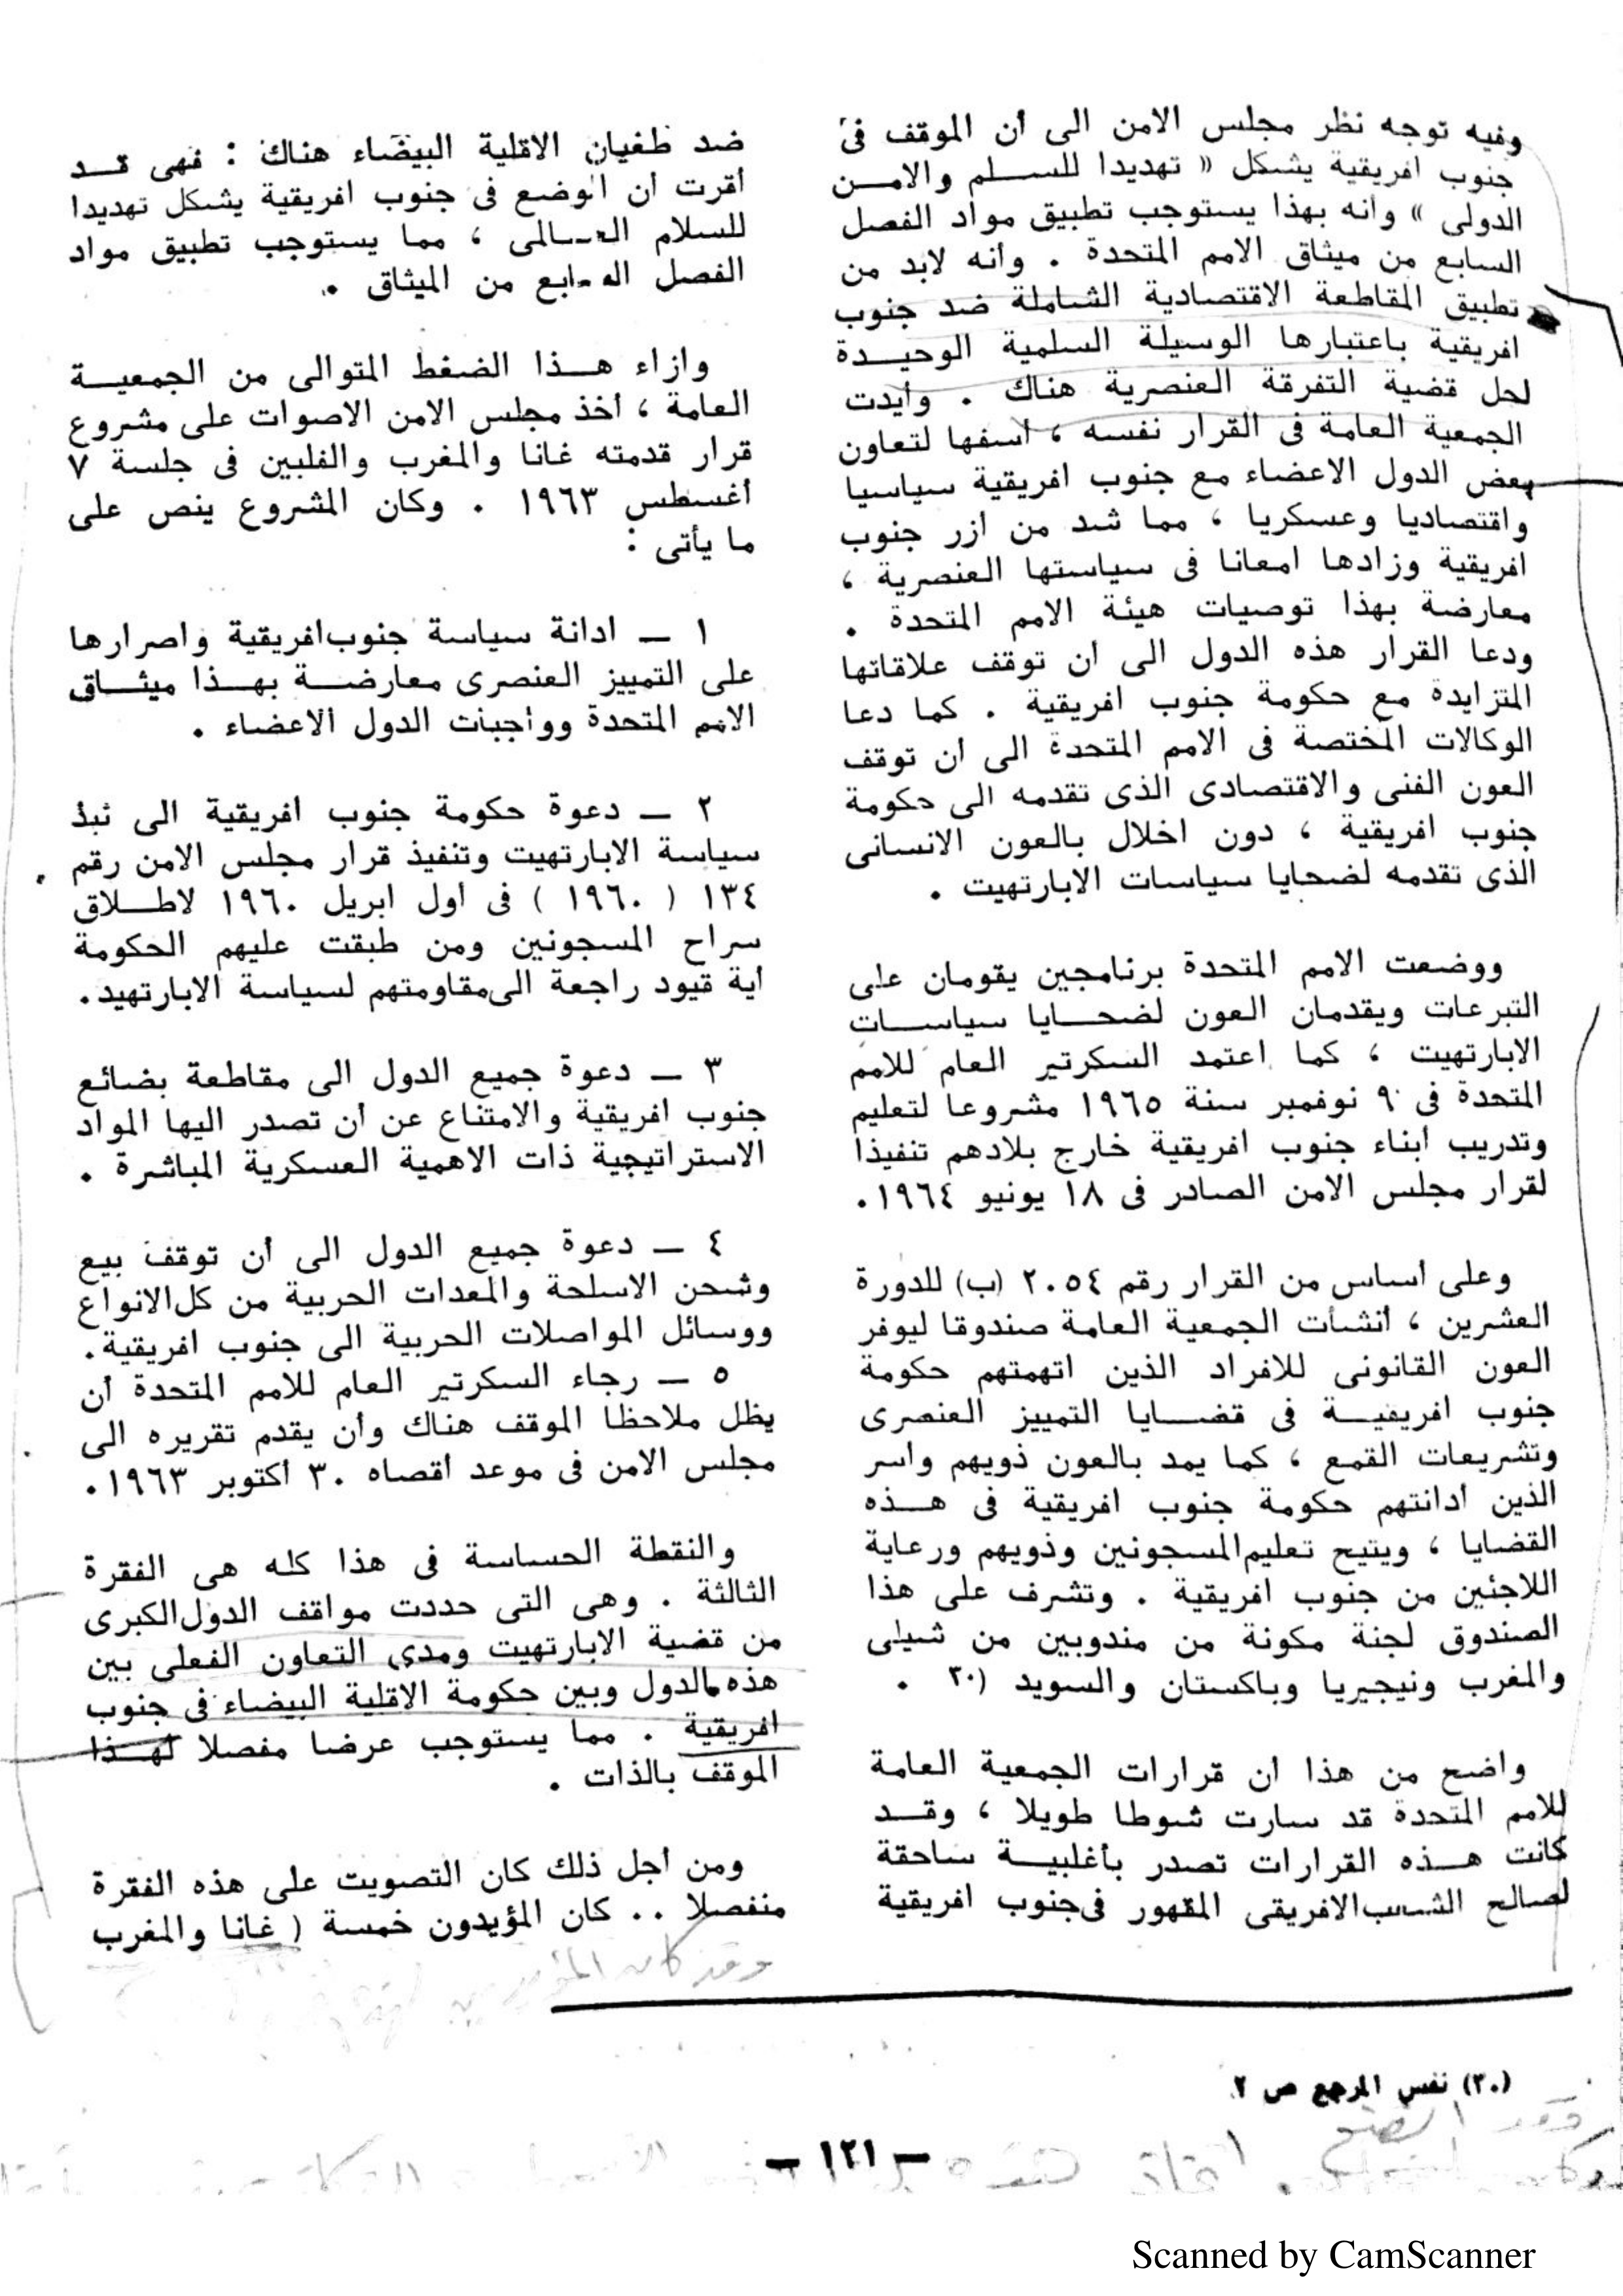 وفيه توجه نظر مجلس الامن الى أن الموقف فى
جنوب افريقية يشكل « تهديدا للسـلم والامـن
الدولى » وانه بهذا يستوجب تطبيق مواد الفصل
السابع من ميثاق الامم المتحدة . وانه لابد من
تطبيق المقاطعة الاقتصادية الشاملة ضد جنوب
افريقية باعتبارها الوسيلة السلمية الوحيـدة
لحل قضية التفرقة العنصرية هناك . وأيدت
الجمعية العامة فى القرار نفسه ، أسفها لتعاون
بعض الدول الاعضاء مع جنوب افريقية سياسيا
واقتصاديا وعسكريا ، مما شد من ازر جنوب
افريقية وزادها امعانا فى سياستها العنصرية ،
معارضة بهذا توصيات هيئة الامم المتحدة .
ودعا القرار هذه الدول الى أن توقف علاقاتها
المتزايدة مع حكومة جنوب افريقية . كما دعا
الوكالات المختصة فى الامم المتحدة الى أن توقف
العون الفنى والاقتصادى الذى تقدمه الى حكومة
جنوب افريقية ، دون اخلال بالعون الانسانى
الذى تقدمه لضحايا سياسات الابارتهيت .
ووضعت الامم المتحدة برنامجين يقومان على
التبرعات ويقدمان العون لضحـايا سياسـات
الابارتهيت ، كما اعتمد السكرتير العام للامم
المتحدة فى ٩ نوفمبر سنة ١٩٦٥ مشروعا لتعليم
وتدريب أبناء جنوب افريقية خارج بلادهم تنفيذا
لقرار مجلس الامن الصادر فى ١٨ يونيو ١٩٦٤.
وعلى أساس من القرار رقم ٢٠٥٤ (ب) للدورة
العشرين ، أنشأت الجمعية العامة صندوقا ليوفر
العون القانونى للافراد الذين اتهمتهم حكومة
جنوب افريقيـة فى قضـايا التمييز العنصرى
وتشريعات القمع ، كما يمد بالعون ذويهم واسر
الذين أدانتهم حكومة جنوب افريقية فى هـذه
القضايا ، ويتيح تعليم المسجونين وذويهم ورعاية
اللاجئين من جنوب افريقية . وتشرف على هذا
الصندوق لجنة مكونة من مندوبين من شيلى
والمغرب ونيجيريا وباكستان والسويد (٣٠ .
واضح من هذا ان قرارات الجمعية العامة
للامم المتحدة قد سارت شوطا طويلا ، وقـد
كانت هـذه القرارات تصدر بأغلبيـة ساحقة
لصالح الشعب الافريقى المقهور فى جنوب افريقية
ضد طغيان الاقلية البيضاء هناك : فهى قـد
أقرت أن الوضع فى جنوب افريقية يشكل تهديدا
للسلام العـالمى ، مما يستوجب تطبيق مواد
الفصل السابع من الميثاق .
وازاء هـذا الضغط المتوالى من الجمعيـة
العامة ، أخذ مجلس الامن الاصوات على مشروع
قرار قدمته غانا والمغرب والفلبين فى جلسة ٧
أغسطس ١٩٦٣ . وكان المشروع ينص على
ما يأتى :
١ ــ ادانة سياسة جنوب افريقية واصرارها
على التمييز العنصرى معارضـة بهـذا ميثـاق
الامم المتحدة وواجبات الدول الاعضاء .
٢ ــ دعوة حكومة جنوب افريقية الى نبذ
سياسة الابارتهيت وتنفيذ قرار مجلس الامن رقم
١٣٤ ( ١٩٦٠ ) فى أول ابريل ١٩٦٠ لاطـلاق
سراح المسجونين ومن طبقت عليهم الحكومة
أية قيود راجعة الى مقاومتهم لسياسة الابارتهيد.
٣ ــ دعوة جميع الدول الى مقاطعة بضائع
جنوب افريقية والامتناع عن أن تصدر اليها المواد
الاستراتيجية ذات الاهمية العسكرية المباشرة .
٤ ــ دعوة جميع الدول الى أن توقف بيع
وشحن الاسلحة والمعدات الحربية من كل الانواع
ووسائل المواصلات الحربية الى جنوب افريقية.
٥ ــ رجاء السكرتير العام للامم المتحدة أن
يظل ملاحظا الموقف هناك وأن يقدم تقريره الى
مجلس الامن فى موعد أقصاه ٣٠ أكتوبر ١٩٦٣.
والنقطة الحساسة فى هذا كله هى الفقرة
الثالثة . وهى التى حددت مواقف الدول الكبرى
من قضية الابارتهيت ومدى التعاون الفعلى بين
هذه الدول وبين حكومة الاقلية البيضاء فى جنوب
افريقية . مما يستوجب عرضا مفصلا لهـذا
الموقف بالذات .
ومن أجل ذلك كان التصويت على هذه الفقرة
منفصلا .. كان المؤيدون خمسة ( غانا والمغرب
وقد كان
(٣٠) نفس المرجع ص ٢
ــ ١٢١ ــ
Scanned by CamScanner